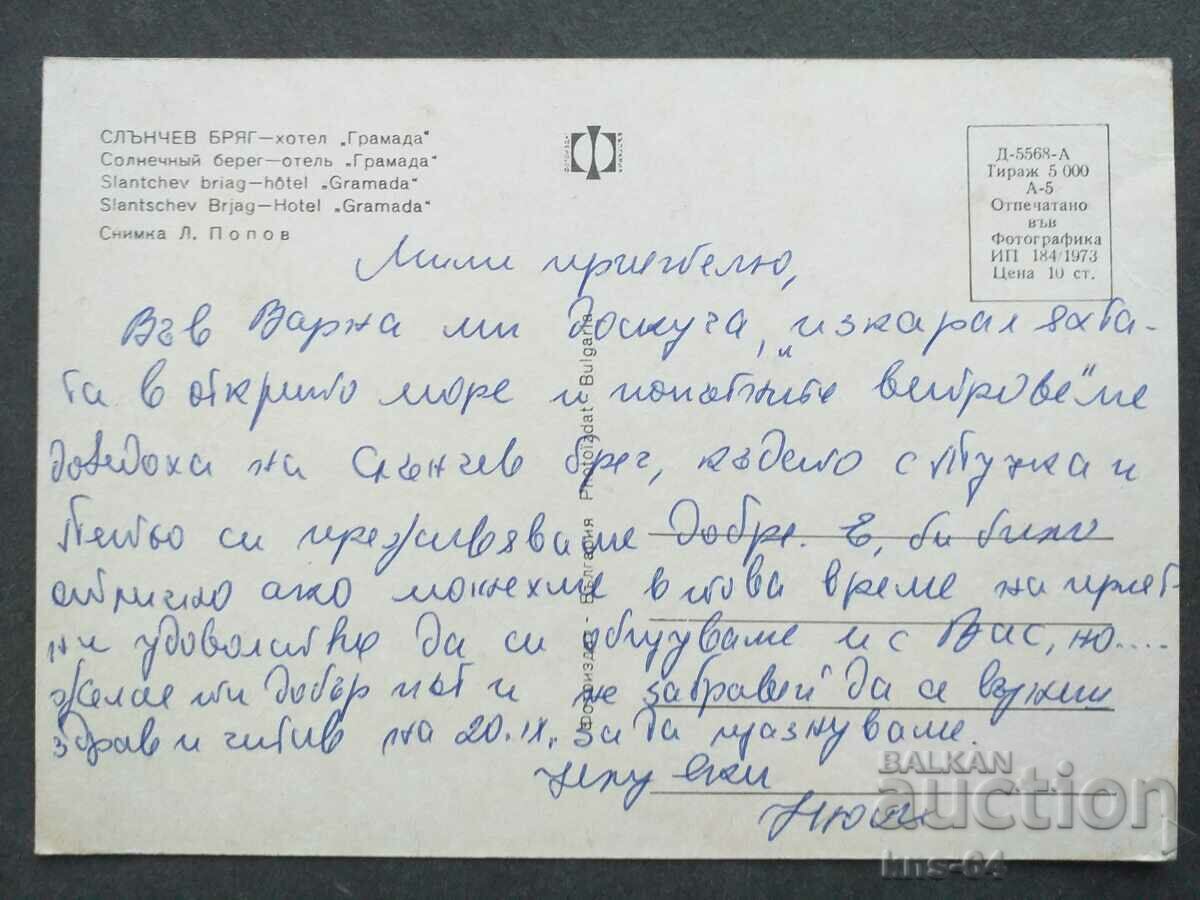 СЛЪНЧЕВ БРЯГ—хотел „Грамада"
Солнечный берег—отель „Грамада"
Slantchev briag—hôtel „Gramada"
Slantschev Brjag—Hotel „Gramada"
Снимка Л. Попов
Д-5568-А
Тираж 5 000
А-5
Отпечатано
във
Фотографика
ИП 184/1973
Цена 10 ст.
Фотоиздат - България Photoizdat - Bulgaria
Мили приятелю,
Във Варна ми доскуча, „изкарал яхта-
та в открито море и попътните ветрове" ме
доведоха на Слънчев бряг, където с Тужка и
Петьо си преживяваме добре. Е, би било
отлично ако можехме в това време на прият-
ни удоволствия да си общуваме и с Вас, но....
Желая ти добър път и не забравяй да се върнеш
здрав и читав на 20.IX. за да празнуваме.
BALKAN
auction
kns-64